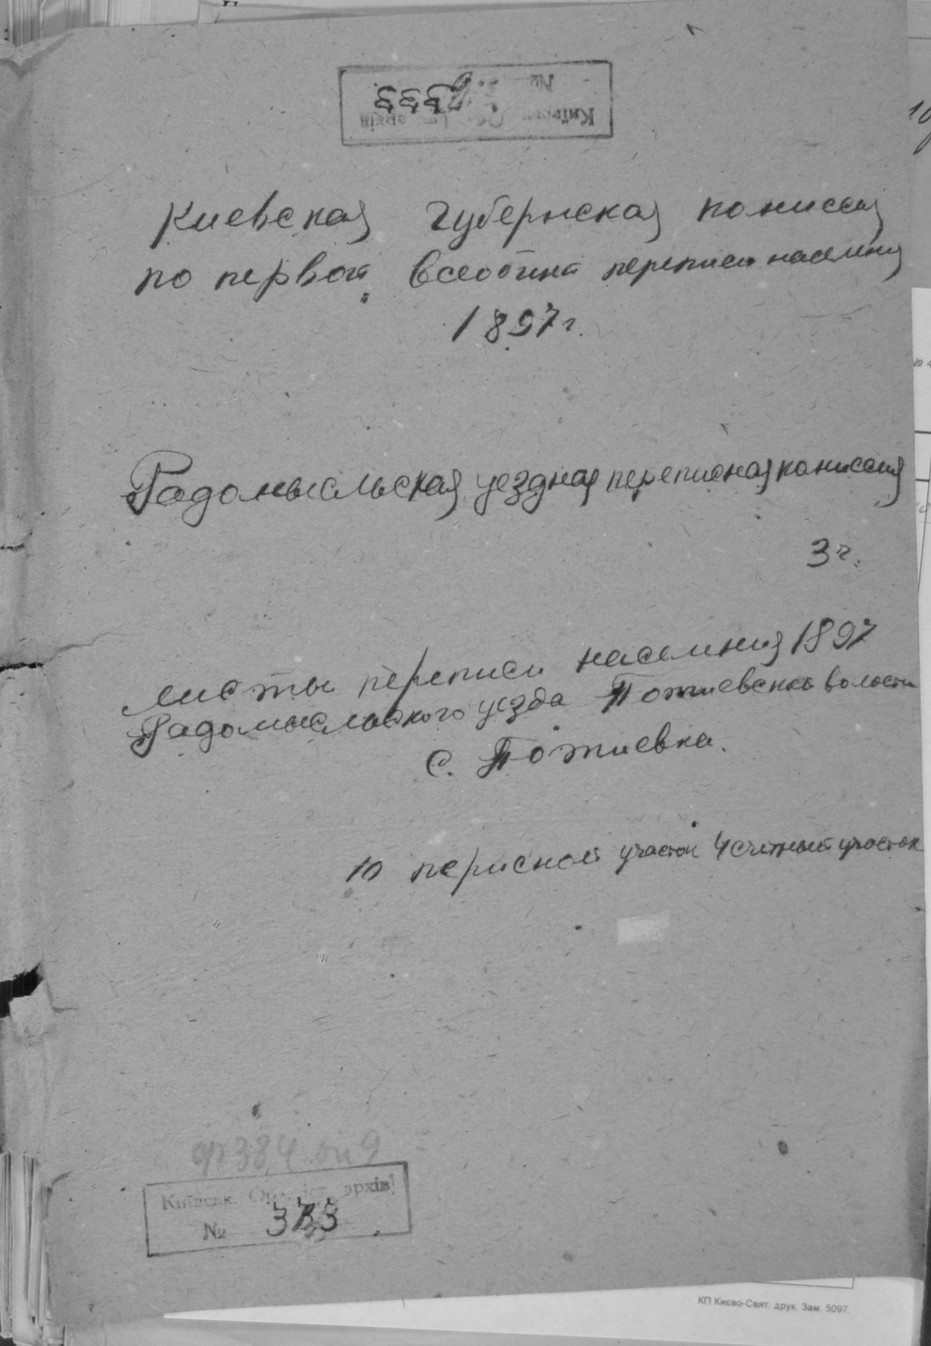 Київськ. Обл. іст. архів
№
Киевская губернская комиссия
по первой всеобщей переписи населения
1897 г.
Радомысльская уездная переписная комиссия
3 ч.
листы переписи населения 1897
Радомысльского уезда Потиевской волости
с. Потиевка.
10 переисной участок 4 счетный участок
ф 384 оп 9
Київськ. Обл. іст. архів
№ 333
КП Києво-Свят. друк. Зам. 5097.